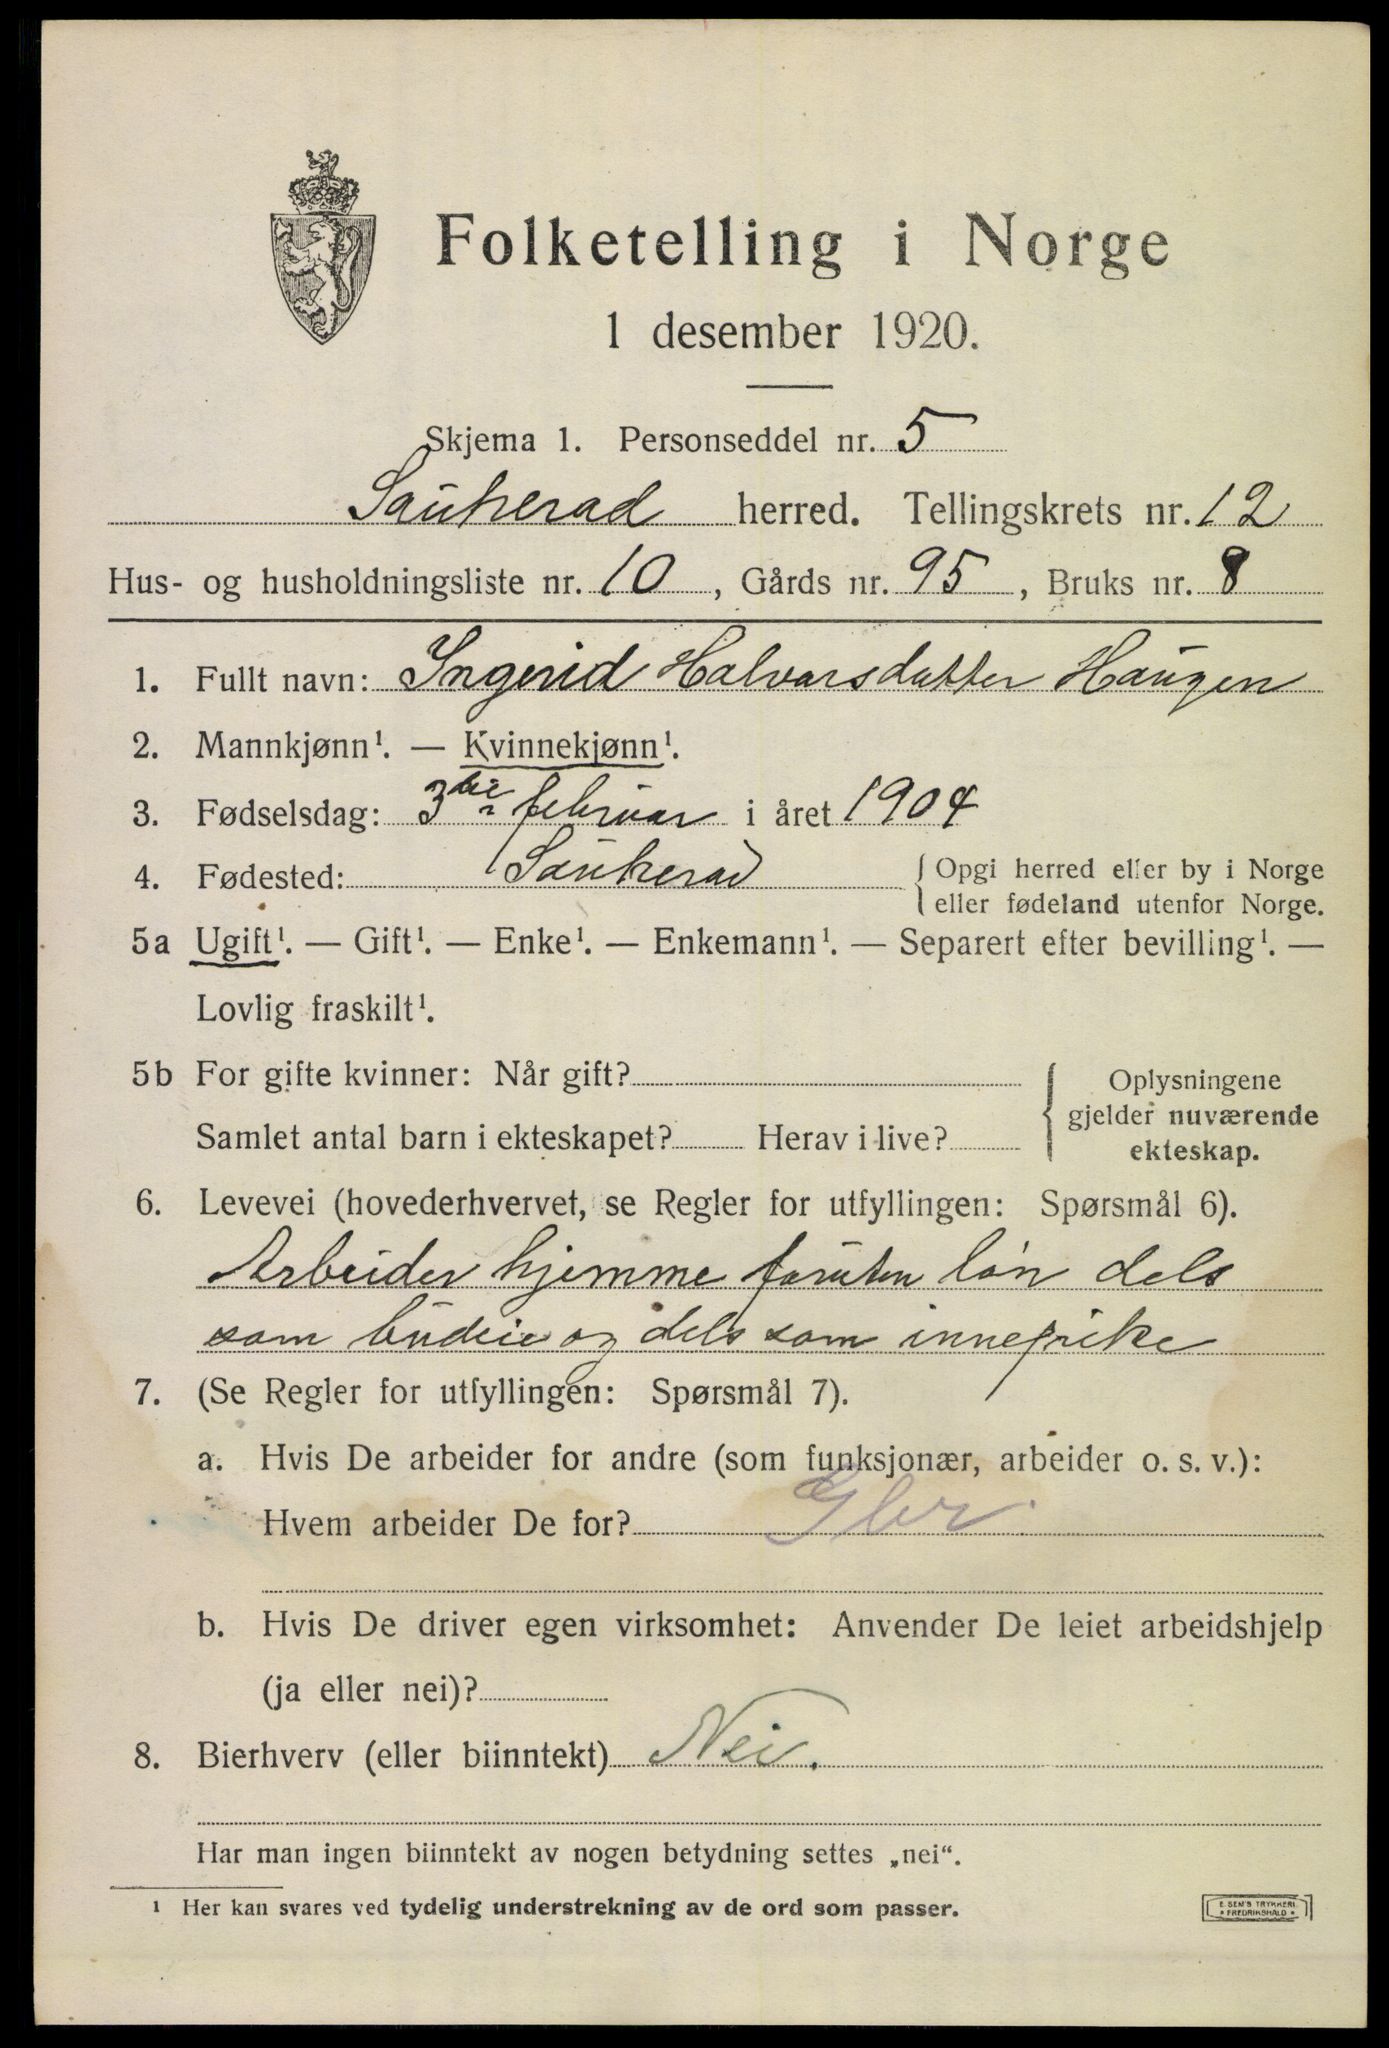 Folketelling i Norge
1 desember 1920.
Skjema 1. Personseddel nr. 5
Sauherad herred. Tellingskrets nr. 12
Hus- og husholdningsliste nr. 10, Gårds nr. 95, Bruks nr. 8
1. Fullt navn: Ingerid Halvorsdatter Haugen
2. Mannkjønn¹. — Kvinnekjønn¹.
3. Fødselsdag: 3die februar i året 1904
4. Fødested: Sauherad { Opgi herred eller by i Norge
eller fødeland utenfor Norge.
5a Ugift¹. — Gift¹. — Enke¹. — Enkemann¹. — Separert efter bevilling¹. —
Lovlig fraskilt¹.
5b For gifte kvinner: Når gift?
Samlet antal barn i ekteskapet? Herav i live?
{ Oplysningene
gjelder nuværende
ekteskap.
6. Levevei (hovederhvervet, se Regler for utfyllingen: Spørsmål 6).
Arbeider hjemme foruten løn dels
som budeie og dels som innepike
7. (Se Regler for utfyllingen: Spørsmål 7).
a. Hvis De arbeider for andre (som funksjonær, arbeider o. s. v.):
Hvem arbeider De for? Gbr
b. Hvis De driver egen virksomhet: Anvender De leiet arbeidshjelp
(ja eller nei)?
8. Bierhverv (eller biinntekt) Nei.
Har man ingen biinntekt av nogen betydning settes „nei“.
¹ Her kan svares ved tydelig understrekning av de ord som passer.
E. SEM'S TRYKKERI
* FREDRIKSHALD *